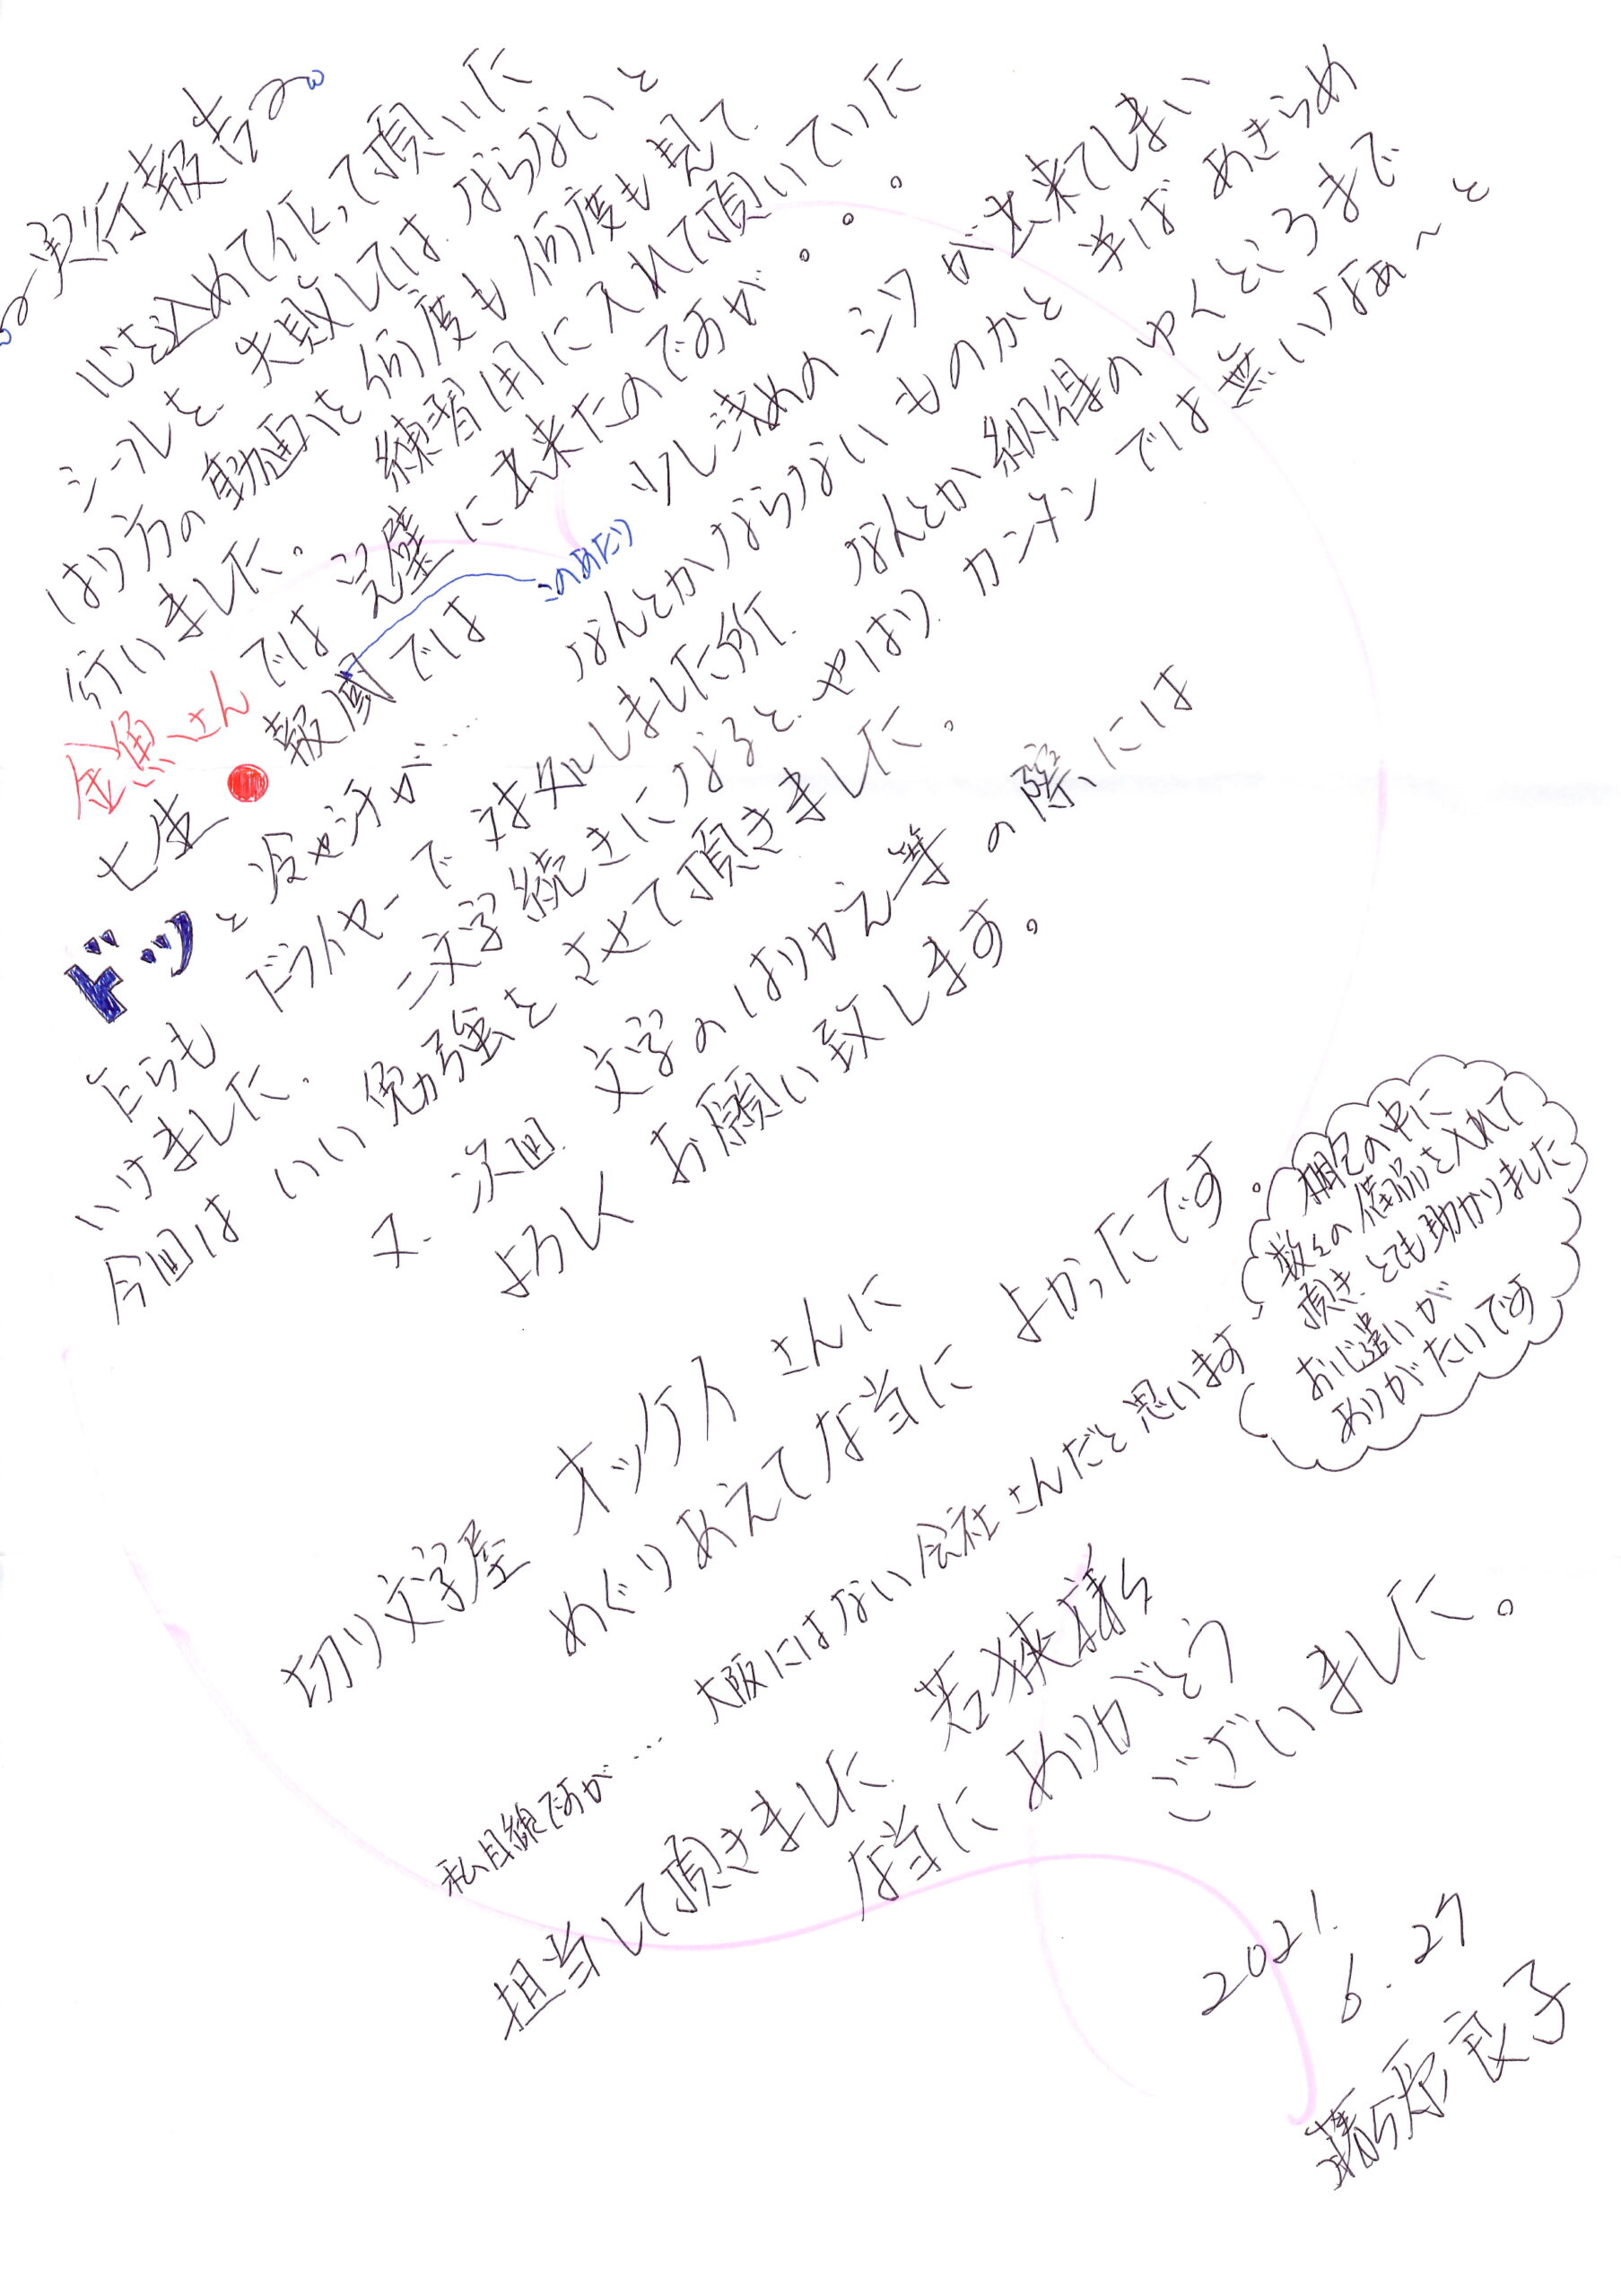 〜実行報告〜
心を込めて作って頂いた
シールを、失敗してはならないと
はり方の動画を何度も何度も見て、
行いました。練習用に入れて頂いていた
金魚さんでは完璧に出来たのですが。。。
七生●報國では 少し浅めのシワが出来てしまい
このあたり
ドッと冷や汗が…… なんとかならないものかと 半ばあきらめ
たらも ドライヤーで対処しました所、なんとか納得のゆくところまで
いけました。二文字続きになると、やはりカンタンでは無いなぁ〜と
今回はいい勉強をさせて頂きました。
又、次回、文字のはりかえ等の際には
よろしくお願い致します。
切り文字屋 オックス さんに
めぐりあえて本当に よかったです。
私目線ですが… 大阪にはない会社さんだと思います
梱包の中に
数々の備品を入れて
頂き、とても助かりました
お心遣いが
ありがたいです
担当して頂きました 若狭様
本当に ありがとう
ございました。
2021.
6.27
藤原良子